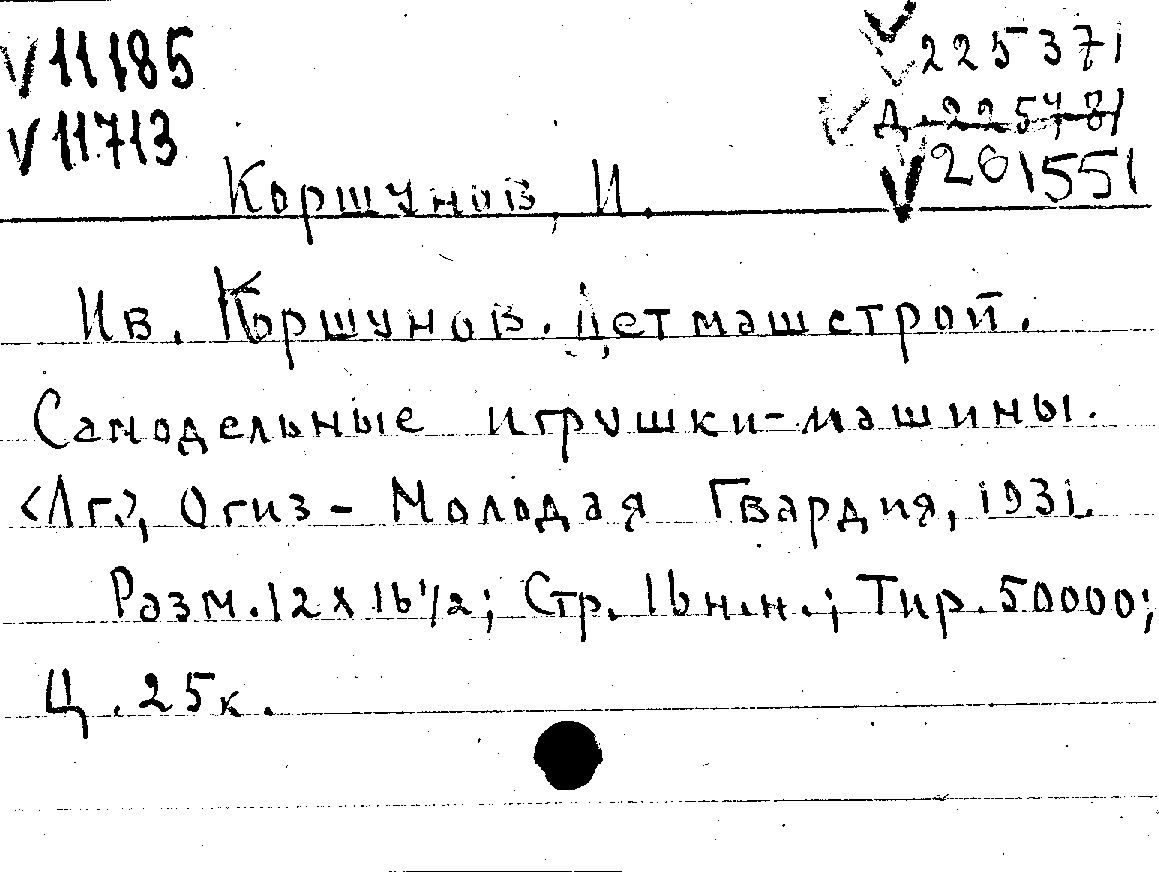 V 11185
V 11713
V 225371
Д. 225481
V 201551
Коршунов, И.
Ив. Коршунов. Детмашстрой.
Самодельные игрушки-машины.
<Лг>, Огиз - Молодая Гвардия, 1931.
Разм. 12 x 16 1/2; Стр. 16 н.н.; Тир. 50000;
Ц. 25к.